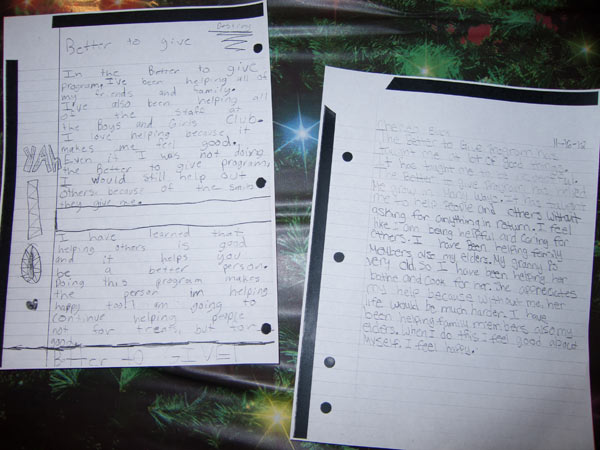 Destiny
Better to give
In the Better to give
program, I've been helping all of
my friends and family.
I've also been helping all
of the staff at
the Boys and Girls Club.
I love helping because it
makes me feel good.
Even if I was not doing
the Better to give program,
I would still help out
others because of the smile
they give me.
I have learned that
helping others is good
and it helps you
be a better person.
Doing this program makes
the person im helping
happy too! I am going to
continue helping people
not for treats, but for
good.
Better to GIVE!
HAW
11-16-12
The Better to Give program has
me a lot of good things.
It has taught me
The Better to Give
me grow in ways. It has
me to help people and others without
asking for anything in return. I feel
like I am being helpful and caring for
others. I have been helping family
members also my elders. My granny is
very old. So I have been helping her
bathe and cook for her. She appreciates
my help because without me, her
life would be much harder. I have
been helping family members also my
elders. When I do this I feel good about
myself. I feel happy.